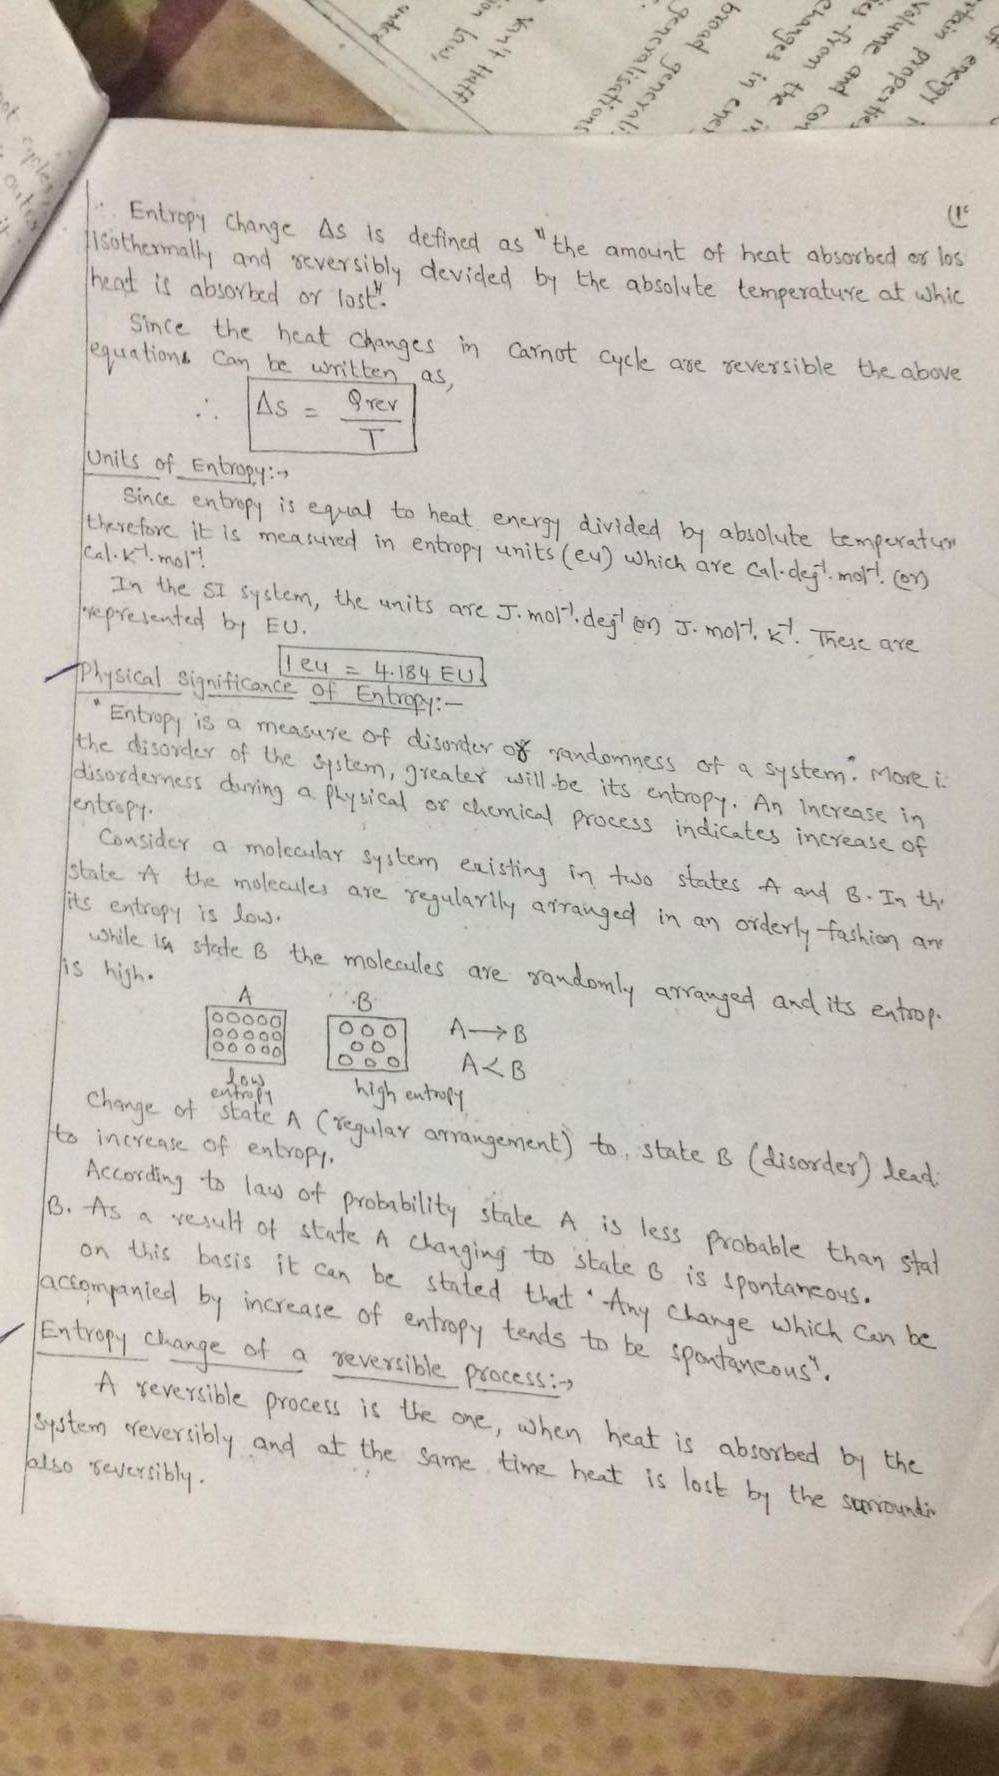 energy i
certain properties
volume and con
ies from the i
changes in ene
broad generali
generalisations
Van't Hoff
tion law,
cycles
outer
(1
∴ Entropy change ΔS is defined as "the amount of heat absorbed or los
Isothermally and reversibly devided by the absolute temperature at whic
heat is absorbed or lost".
Since the heat changes in carnot cycle are reversible the above
equations can be written as,
∴ ΔS = qrev / T
Units of Entropy:→
Since entropy is equal to heat energy divided by absolute temperatur
therefore it is measured in entropy units (eu) which are Cal.deg⁻¹.mol⁻¹. (or)
Cal.K⁻¹.mol⁻¹.
In the SI system, the units are J.mol⁻¹.deg⁻¹ (or) J.mol⁻¹.K⁻¹. These are
represented by EU.
1 eu = 4.184 EU
Physical Significance of Entropy:-
"Entropy is a measure of disorder or randomness of a system". More i
the disorder of the system, greater will be its entropy. An Increase in
disorderness during a physical or chemical process indicates increase of
entropy.
Consider a molecular system existing in two states A and B. In th
state A the molecules are regularily arranged in an orderly fashion an
its entropy is low.
While in state B the molecules are randomly arranged and its entrop
is high.
A B
A → B
A < B
low
entropy
high entropy
Change of state A (regular arrangement) to state B (disorder) lead
to increase of entropy.
According to law of probability state A is less probable than stat
B. As a result of state A changing to state B is spontaneous.
on this basis it can be stated that "Any change which can be
accompanied by increase of entropy tends to be spontaneous".
Entropy change of a reversible process:→
A reversible process is the one, when heat is absorbed by the
system reversibly and at the same time heat is lost by the surroundi
also reversibly.